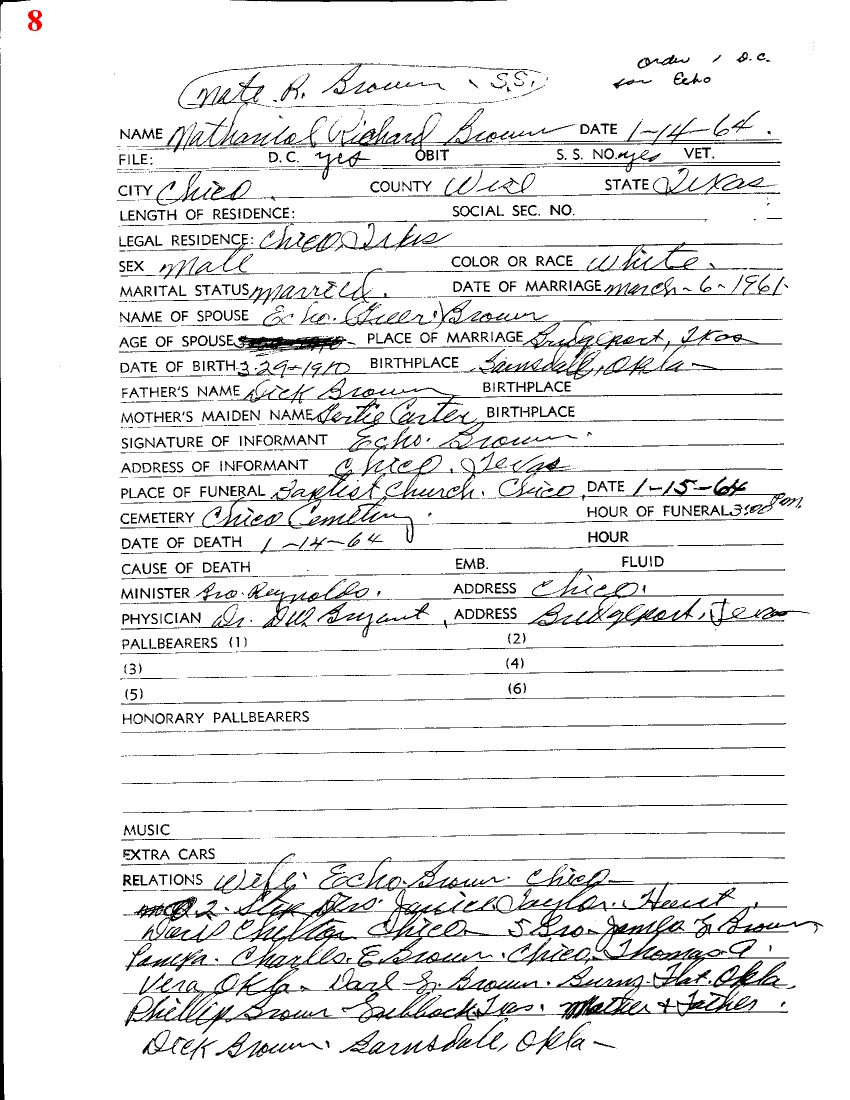 8
order 1 D.C.
for Echo
Nate R. Brown S.S.
NAME Nathaniel Richard Brown DATE 1-14-64.
FILE: D.C. yes OBIT S. S. NO. yes VET.
CITY Chico. COUNTY Wise STATE Texas
LENGTH OF RESIDENCE: SOCIAL SEC. NO.
LEGAL RESIDENCE: Chico, Texas
SEX Male COLOR OR RACE White.
MARITAL STATUS married. DATE OF MARRIAGE march-6-1961.
NAME OF SPOUSE Echo. (Greer) Brown
AGE OF SPOUSE PLACE OF MARRIAGE Bridgeport, Texas
DATE OF BIRTH 3-29-1910 BIRTHPLACE Barnsdall, Okla-
FATHER'S NAME Dick Brown BIRTHPLACE
MOTHER'S MAIDEN NAME Gertie Carter, BIRTHPLACE
SIGNATURE OF INFORMANT Echo. Brown.
ADDRESS OF INFORMANT Chico. Texas
PLACE OF FUNERAL Baptist Church. Chico, DATE 1-15-64
CEMETERY Chico Cemetery. HOUR OF FUNERAL 3:00 P.m.
DATE OF DEATH 1-14-64 HOUR
CAUSE OF DEATH EMB. FLUID
MINISTER Bro. Reynolds. ADDRESS Chico.
PHYSICIAN Dr. DW. Bryant, ADDRESS Bridgeport, Texas
PALLBEARERS (1) (2)
(3) (4)
(5) (6)
HONORARY PALLBEARERS
MUSIC
EXTRA CARS
RELATIONS Wife: Echo Brown. Chico-
2. Step Drs. Janice Taylor. Hurst,
Doris Chilton Chico- 5 Bro. James Brown
Pampa. Charles. E Brown. Chico, Thomas A.
Vera, Okla. Darl Brown. Burns Flat. Okla,
Phillip Brown Lubbock, Texas. Mother & Father.
Dick Brown. Barnsdale, Okla-